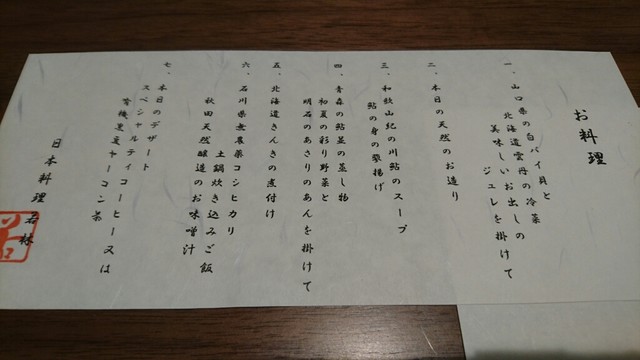 お料理
一、山口県の白バイ貝と
北海道雲丹の冷菜
美味しいお出しの
ジュレを掛けて
二、本日の天然のお造り
三、和歌山紀の川鮎のスープ
鮎の身の素揚げ
四、青森の鮎並の蒸し物
初夏の彩り野菜と
明石のあさりのあんを掛けて
五、北海道きんきの煮付け
六、石川県無農薬コシヒカリ
土鍋炊き込みご飯
秋田天然醸造のお味噌汁
七、本日のデザート
スペシャルティコーヒー又は
有機黒豆ヤーコン茶
日本料理 若林